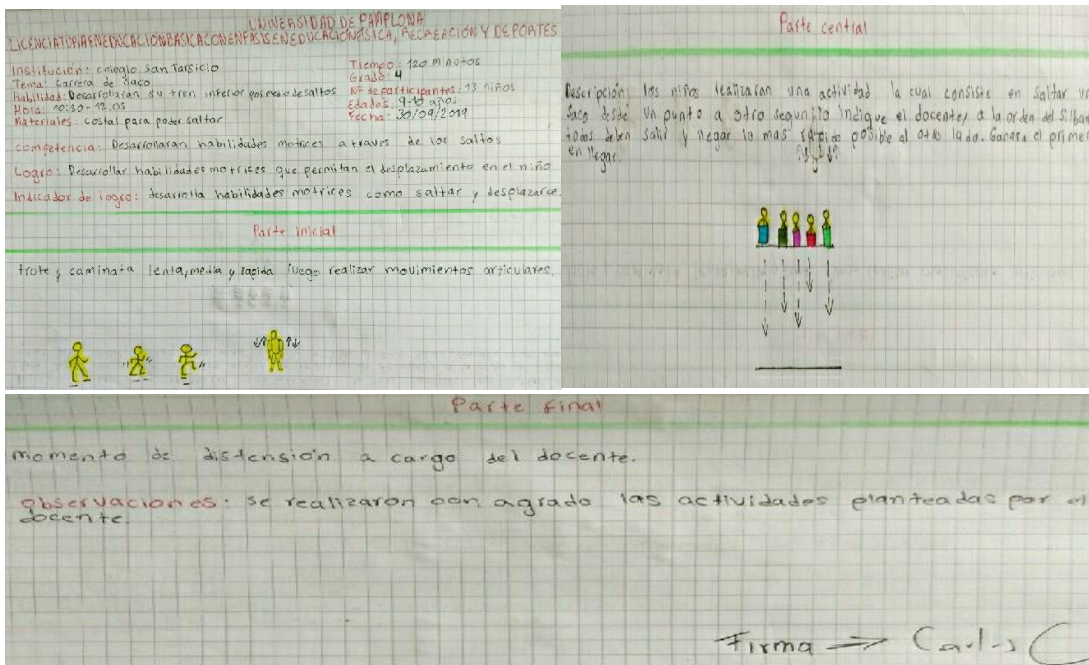 UNIVERSIDAD DE PAMPLONA
LICENCIATURA EN EDUCACION BASICA CON ENFASIS EN EDUCACION FISICA, RECREACIÓN Y DEPORTES
Institución: colegio San Tarsicio
Tema: Carrera de Saco
Habilidad: Desarrollaran su tren inferior por medio de saltos
Hora: 10:30-12:05
Materiales: costal para poder saltar
Tiempo: 120 minutos
Grado: 4
Nº de participantes: 13 niños
Edades: 9-10 años
Fecha: 30/09/2019
competencia: Desarrollaran habilidades motrices a través de los saltos
Logro: Desarrollar habilidades motrices que permitan el desplazamiento en el niño
Indicador de logro: desarrolla habilidades motrices como saltar y desplazarce
Parte inicial
trote, caminata lenta, media y rapida luego realizar movimientos articulares.
Parte central
Descripción: los niños realizaran una actividad la cual consiste en saltar un
saco desde un punto a otro segun lo indique el docente, a la orden del
todos deben salir y llegar lo mas rapido posible al otro lado. Ganara el primer
en llegar.
Parte final
momento de distensión a cargo del docente.
observaciones: se realizaron con agrado las actividades planteadas por el
docente.
Firma → Carlos C